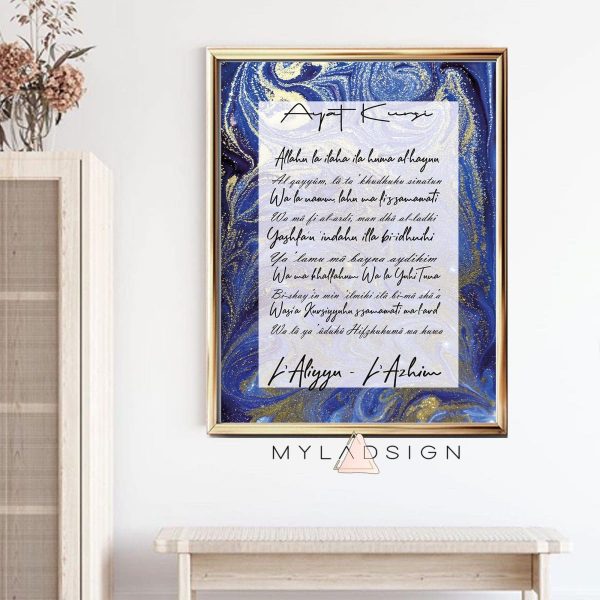 Ayat Kursi
Allahu la ilaha ila huwa al hayyu
Al qayyūm, lā ta'khudhuhu sinatun
Wa la nawm, lahu ma fi s-samawati
Wa mā fi al-ardi, man dhā al-ladhi
Yashfa'u 'indahu illa bi-idhnihi
Ya'lamu mā bayna aydihim
Wa ma khallahum Wa la YuhiTuna
Bi-shay'in min 'ilmihi ilā bi-mā shā'a
Wasi'a Kursiyyuhu s-samawati wa l-ard
Wa lā ya'ūduhū Hifzhuhumā wa huwa
L'Aliyyu - L'Azhim
MYLADSIGN